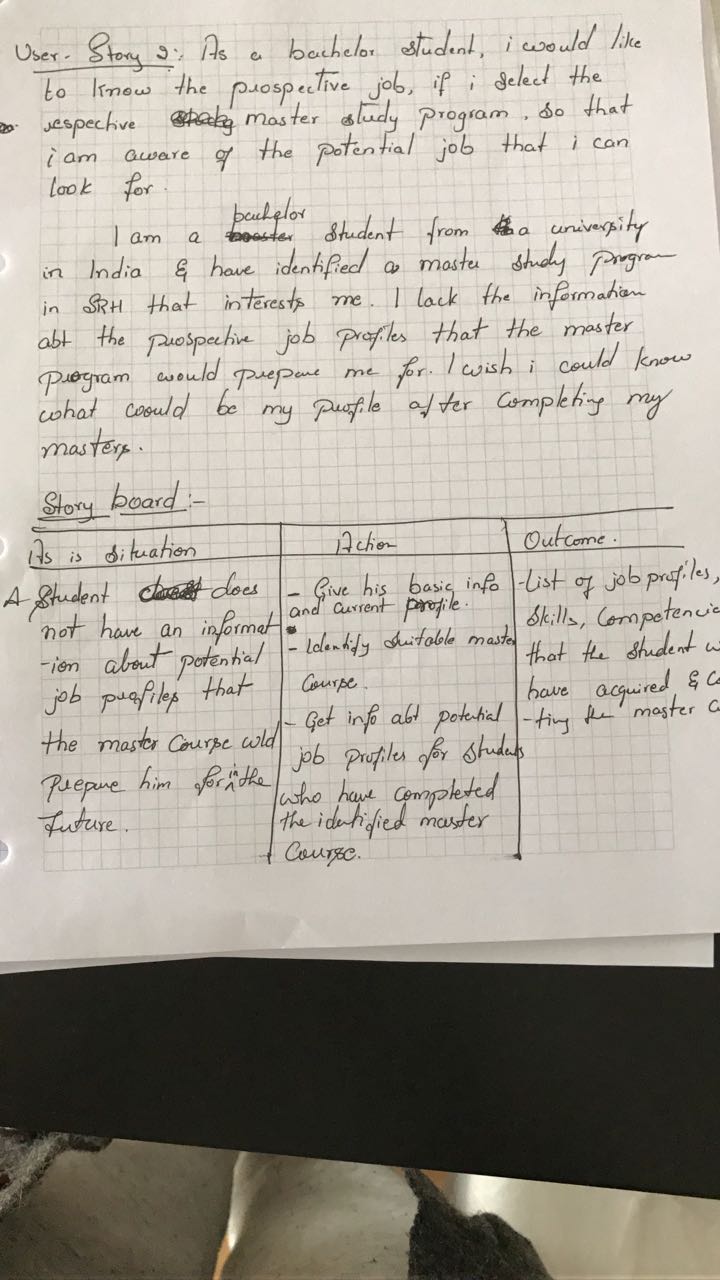 User-Story 2: As a bachelor student, i would like
to know the prospective job, if i select the
respective master study program, so that
i am aware of the potential job that i can
look for.
bachelor
I am a student from a university
in India & have identified a master study program
in SRH that interests me. I lack the information
abt the prospective job profiles that the master
program would prepare me for. I wish i could know
what could be my profile after completing my
masters.
Story board :-
As is situation
A Student does
not have an informat
-ion about potential
job profiles that
the master course wld
prepare him for in the
future.
Action
- Give his basic info
and current profile.
- Identify suitable master
course.
- Get info abt potential
job profiles for students
who have completed
the identified master
course.
Outcome.
- List of job profiles,
skills, Competencie
that the student w
have acquired & co
-ting the master c